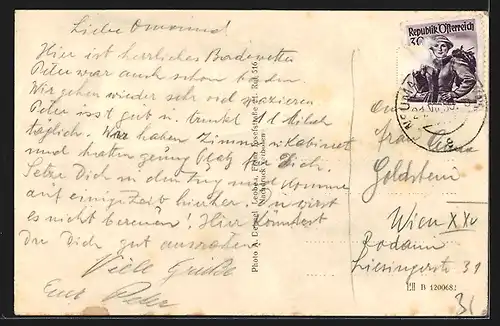 Liebe Omama!
Hier ist herrliches Badewetter
Peter war auch schon baden.
Wir gehen wieder sehr viel spazieren
Peter isst gut u. trinkt 1 l Milch
täglich. Wir haben Zimmer u. Kabinet
und hätten genug Platz für Dich.
Setze Dich in den Zug und komme
auf einige Zeit hierher. Du wirst
es nicht bereuen! Hier könntest
Du Dich gut ausruhen.
Viele Grüße
Eure Peter
Photo A. Leoben,
Nachdruck verboten
Republik Österreich
30
An
Frau Anna
Goldstein
Wien XXV
Rodaun
Liesingerstr 31
B 120068
31